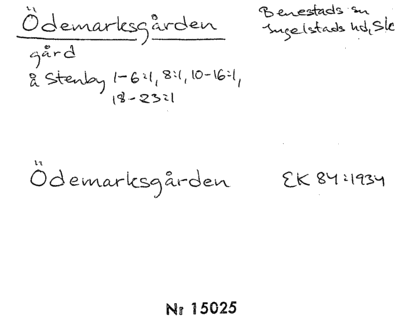 Ödemarksgården
Benestads sn
Ingelstads hd, Sk
gård
å Stenby 1-6:1, 8:1, 10-16:1,
18-23:1
Ödemarksgården
EK 84:1934
Nr 15025